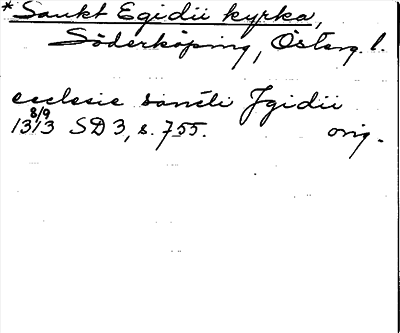 *Sankt Egidii kyrka,
Söderköping, Österg. l.
ecclesie sancti Jgidii
8/9
1313 SD 3, s. 755. orig.